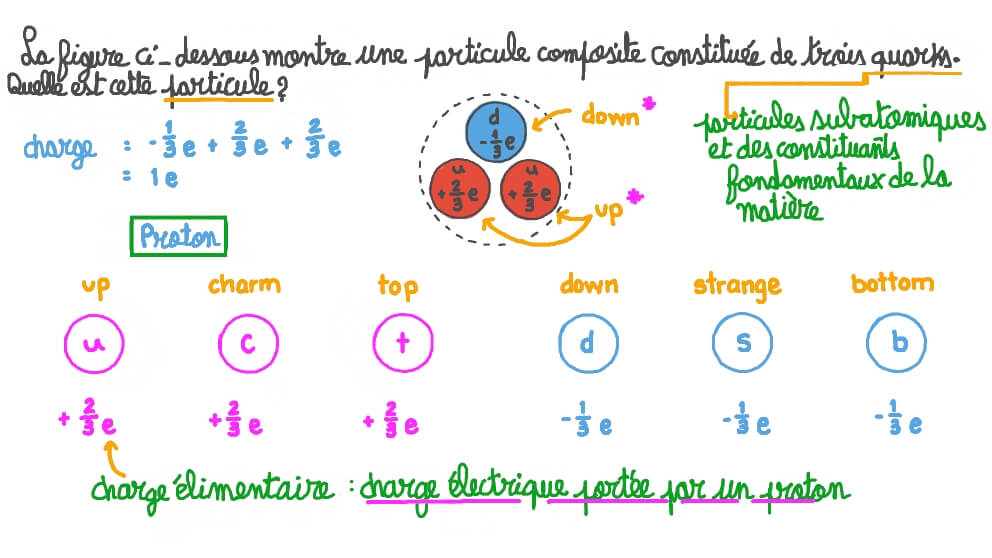 La figure ci-dessous montre une particule composite constituée de trois quarks.
Quelle est cette particule ?
charge : -1/3 e + 2/3 e + 2/3 e
= 1e
Proton
d
-1/3 e
u
+2/3 e
u
+2/3 e
down *
up *
particules subatomiques
et des constituants
fondamentaux de la
matière
up charm top down strange bottom
u c t d s b
+2/3 e +2/3 e +2/3 e -1/3 e -1/3 e -1/3 e
charge élimentaire : charge électrique portée par un proton